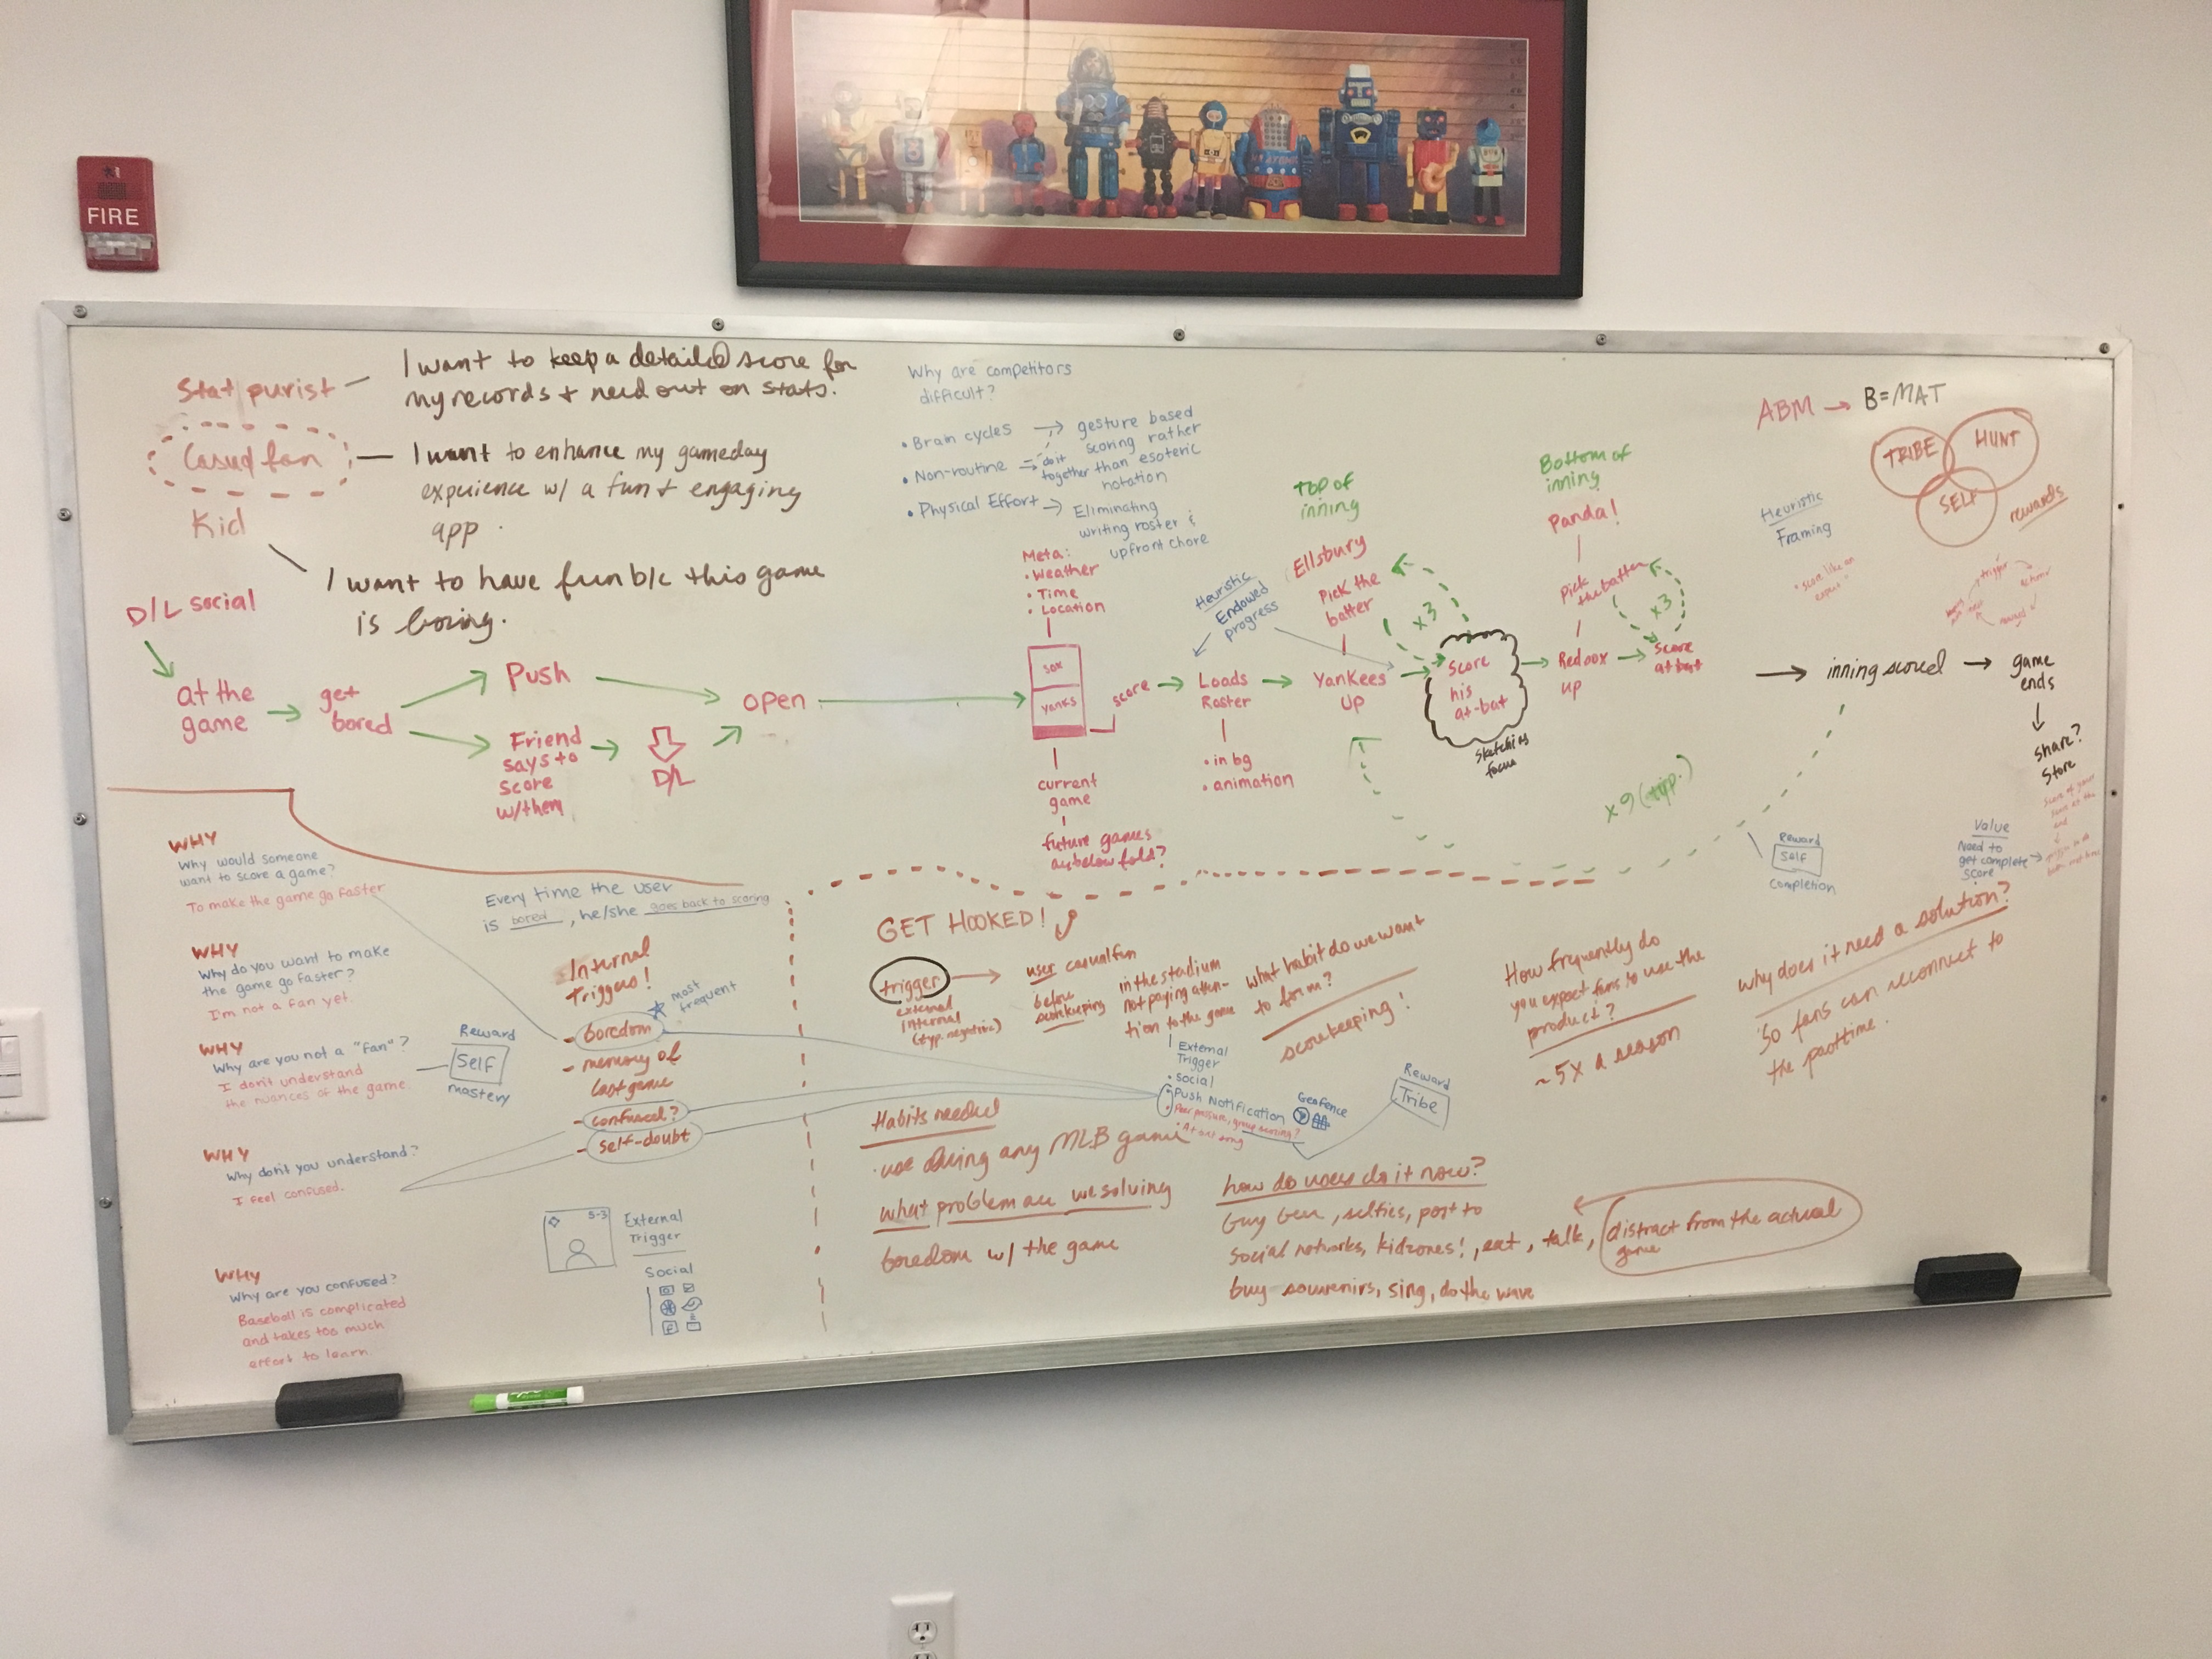 FIRE
Stat purist
I want to keep a detailed score for
my records + neerd out on stats.
Casual fan
I want to enhance my gameday
experience w/ a fun + engaging
app.
Kid
I want to have fun b/c this game
is boring.
Why are competitors
difficult?
• Brain cycles
• Non-routine
• Physical Effort
gesture based
scoring rather
than esoteric
notation
do it
together
Eliminating
writing roster &
upfront chore
ABM → B=MAT
TRIBE
HUNT
SELF
rewards
Heuristic
Framing
"score like an
expert"
trigger
action
reward
D/L social
at the
game
get
bored
Push
Friend
says to
score
w/them
D/L
open
Meta:
• Weather
• Time
• Location
SOX
YANKS
current
game
future games
as below fold?
score
Loads
Roster
• in bg
• animation
Heuristic
Endowed
progress
Top of
inning
Ellsbury
Pick the
batter
x3
Yankees
Up
Score
his
at-bat
sketching
focus
Bottom of
inning
Panda!
Pick
the batter
x3
Red sox
up
Score
at bat
x9 (typ.)
inning scored
game
ends
share?
store
Reward
Self
Completion
Value
Need to
get complete
score
WHY
Why would someone
want to score a game?
To make the game go faster
WHY
Why do you want to make
the game go faster?
I'm not a fan yet.
WHY
Why are you not a "fan"?
I don't understand
the nuances of the game.
Reward
Self
mastery
WHY
Why don't you understand?
I feel confused.
WHY
Why are you confused?
Baseball is complicated
and takes too much
effort to learn.
Every time the user
is bored, he/she goes back to scoring
Internal
Triggers!
most
frequent
- boredom
- memory of
last game
- confused?
- self-doubt
5-3
External
Trigger
Social
GET HOOKED!
trigger
external
internal
(typ. negative)
user casual fan
before
scorekeeping
in the stadium
not paying atten-
tion to the game
External
Trigger
• Social
• Push Notification
• Peer pressure, group scoring?
• At bat song
Geofence
Reward
Tribe
what habit do we want
to form?
scorekeeping!
How frequently do
you expect fans to use the
product?
~5x a season
why does it need a solution?
So fans can reconnect to
the pasttime.
Habits needed
• use during any MLB game
what problem are we solving
boredom w/ the game
how do users do it now?
Buy beer, selfies, post to
social networks, kidzones!, eat, talk,
distract from the actual
game
buy souvenirs, sing, do the wave